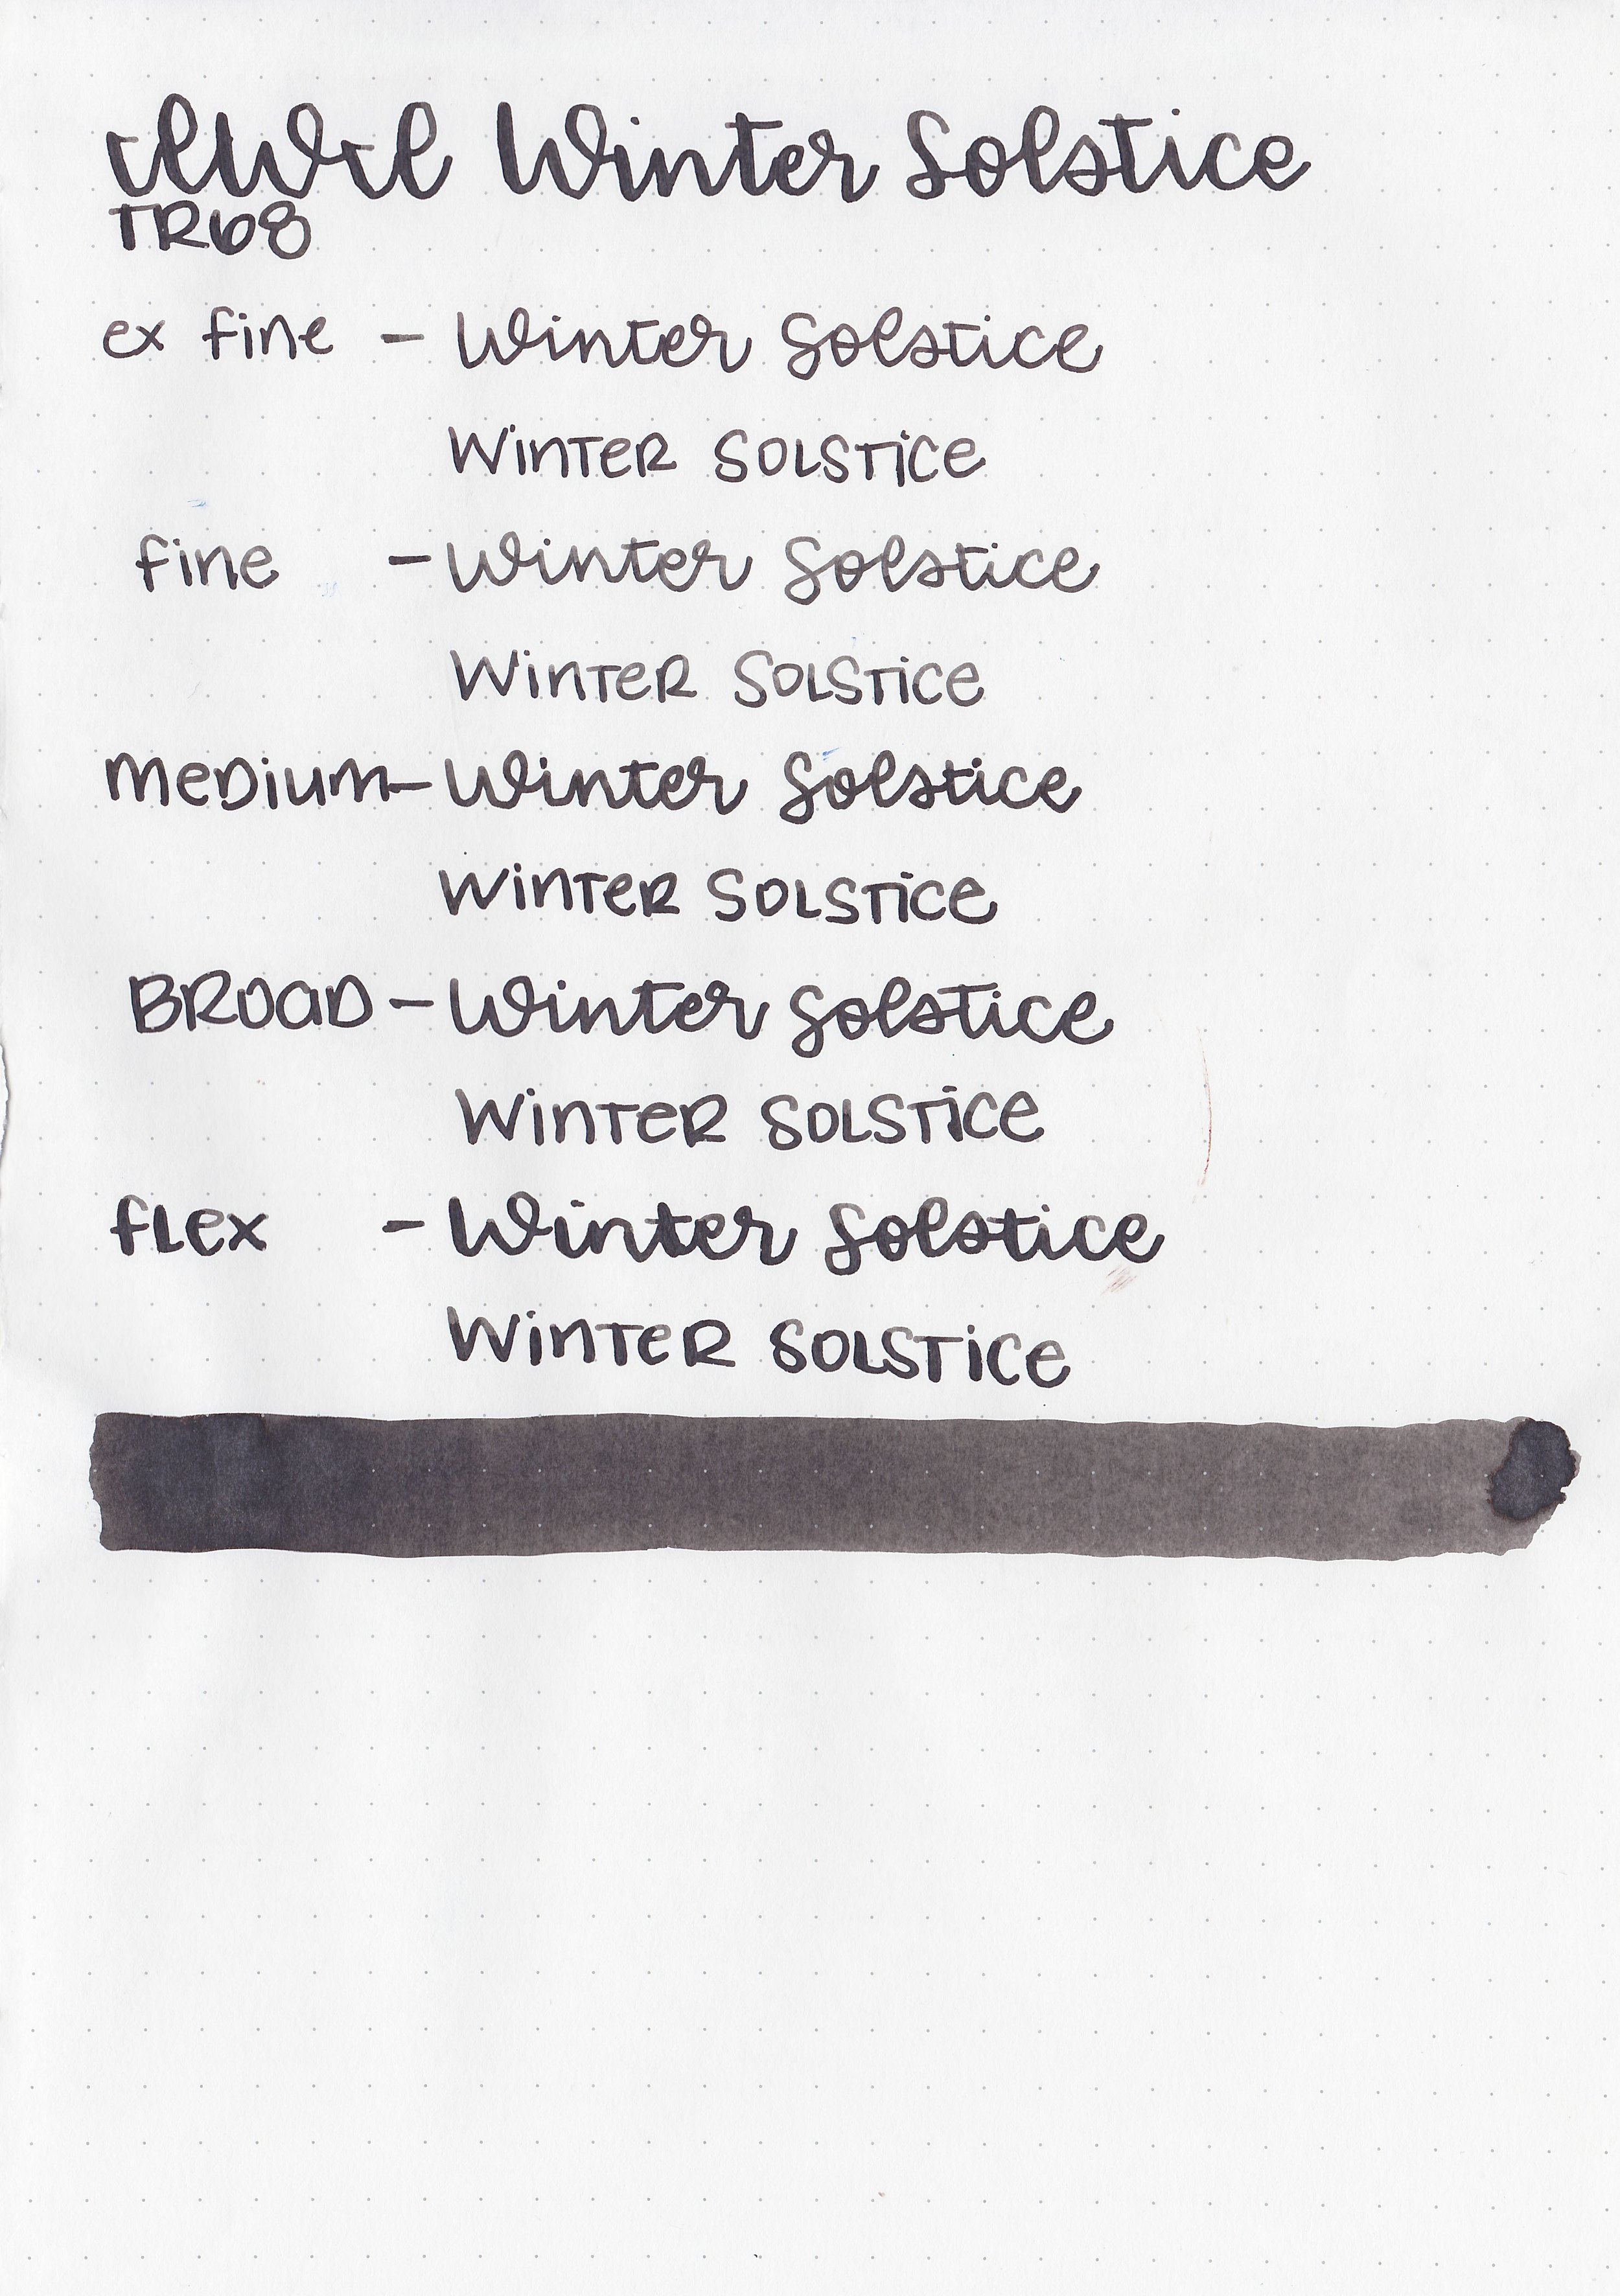 IWI Winter Solstice
TR68
ex fine - Winter Solstice
Winter Solstice
fine - Winter Solstice
Winter Solstice
Medium - Winter Solstice
Winter Solstice
Broad - Winter Solstice
Winter Solstice
flex - Winter Solstice
Winter Solstice